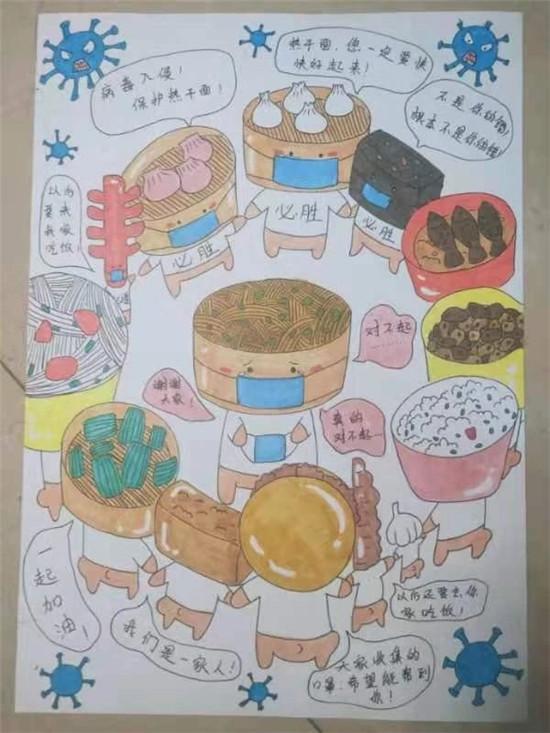 病毒入侵!
保护热干面!
热干面,您一定要快
快好起来!
不是你的错!
根本不是你的错
以后
要来
我家
吃饭!
必胜
必胜
必胜
对不起……
谢谢
大家!
真的
对不起……
一
起
加
油!
我们是一家人!
以后还要去你
家吃饭!
大家收集的
口罩,希望能帮到
你!